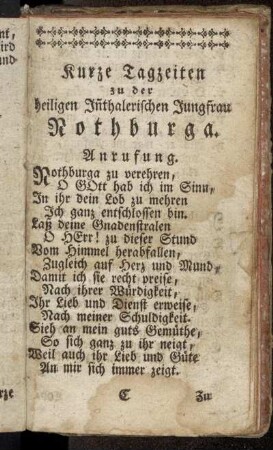 nt,
ird
und
Kurze Tagzeiten
zu der
heiligen Jñthalerischen Jungfrau
Nothburga.
Anrufung.
Nothburga zu verehren,
O GOtt hab ich im Sinn,
In ihr dein Lob zu mehren
Ich ganz entschlossen bin.
Laß deine Gnadenstralen
O HErr! zu dieser Stund
Vom Himmel herabfallen,
Zugleich auf Herz und Mund,
Damit ich sie recht preise,
Nach ihrer Würdigkeit,
Ihr Lieb und Dienst erweise,
Nach meiner Schuldigkeit.
Sieh an mein guts Gemüthe,
So sich ganz zu ihr neigt,
Weil auch ihr Lieb und Güte
An mir sich immer zeigt.
rze
C Zu